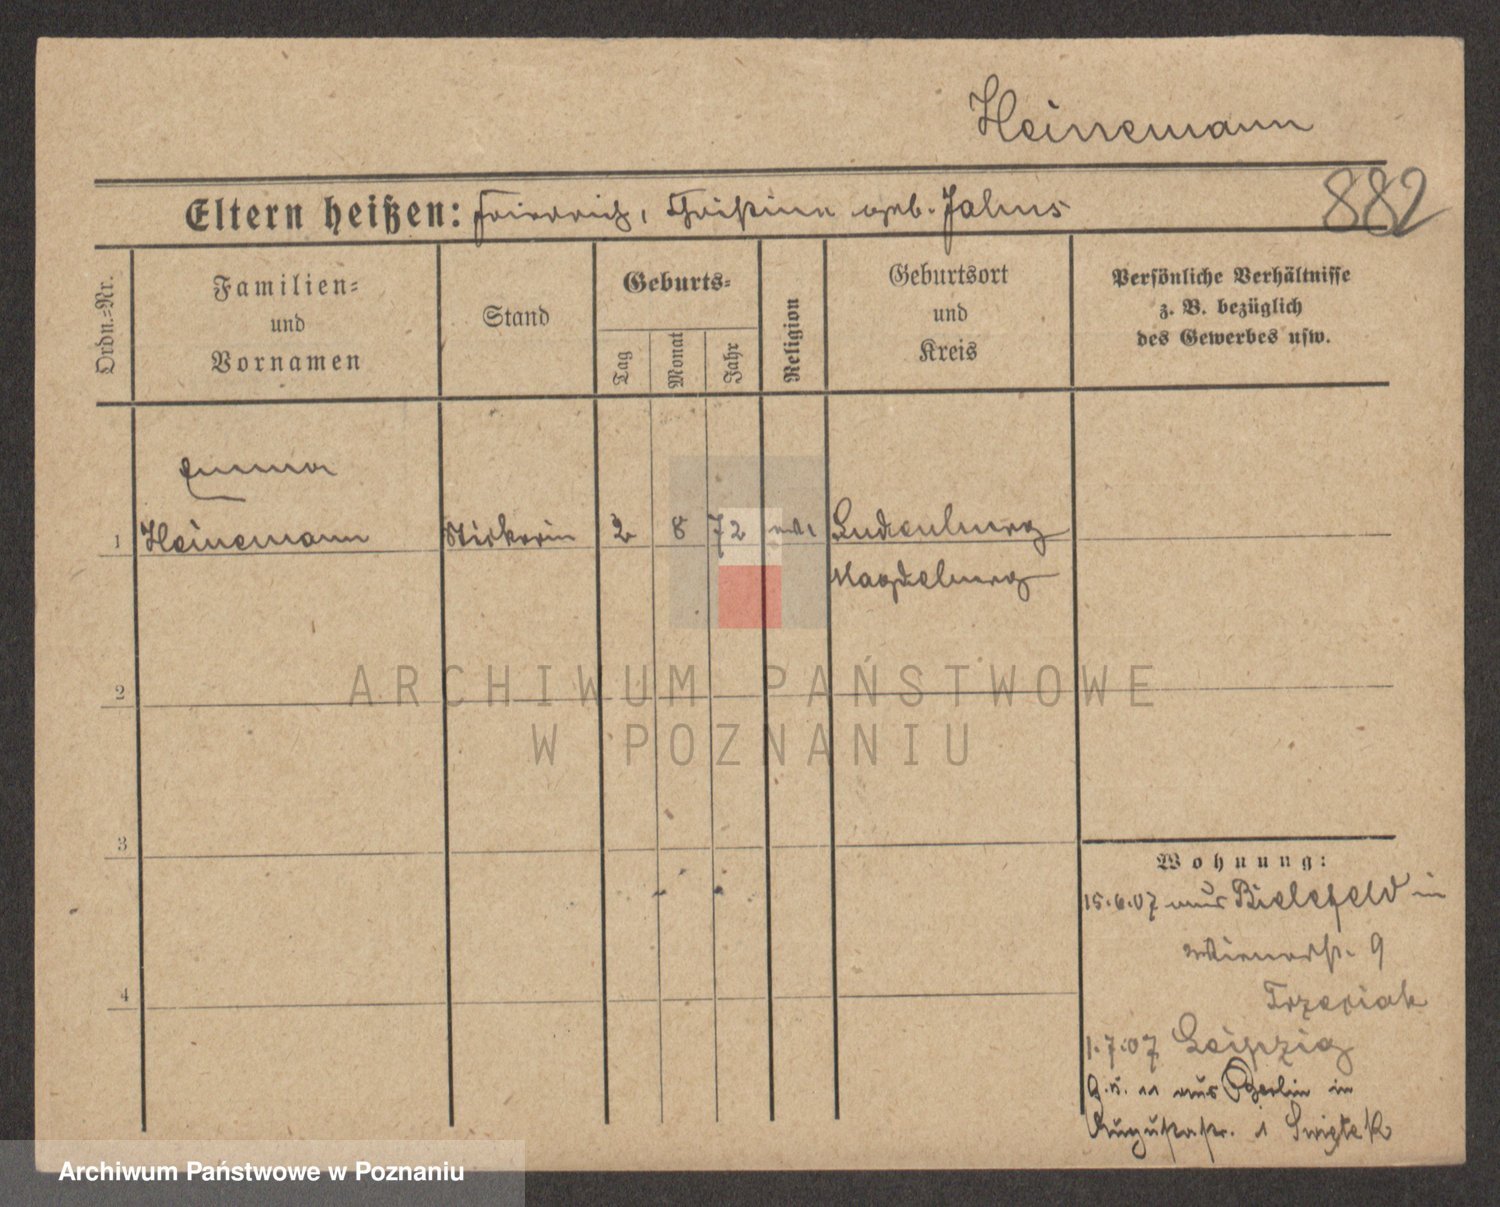 Heinemann
882
Eltern heißen: Friedrich, Christine geb. Jahns
Ordn.-Nr.
Familien-
und
Vornamen
Stand
Geburts-
Tag
Monat
Jahr
Religion
Geburtsort
und
Kreis
Persönliche Verhältnisse
z. B. bezüglich
des Gewerbes usw.
Emma
1 Heinemann Stickerin 2 8 72 ev.
Magdeburg
2
ARCHIWUM PAŃSTWOWE
W POZNANIU
3
Wohnung:
15.6.07 aus Bielefeld in
9
Trzeciak
1.7.07 Leipzig
aus Berlin in
Augustastr. 1 Świątek
4
Archiwum Państwowe w Poznaniu